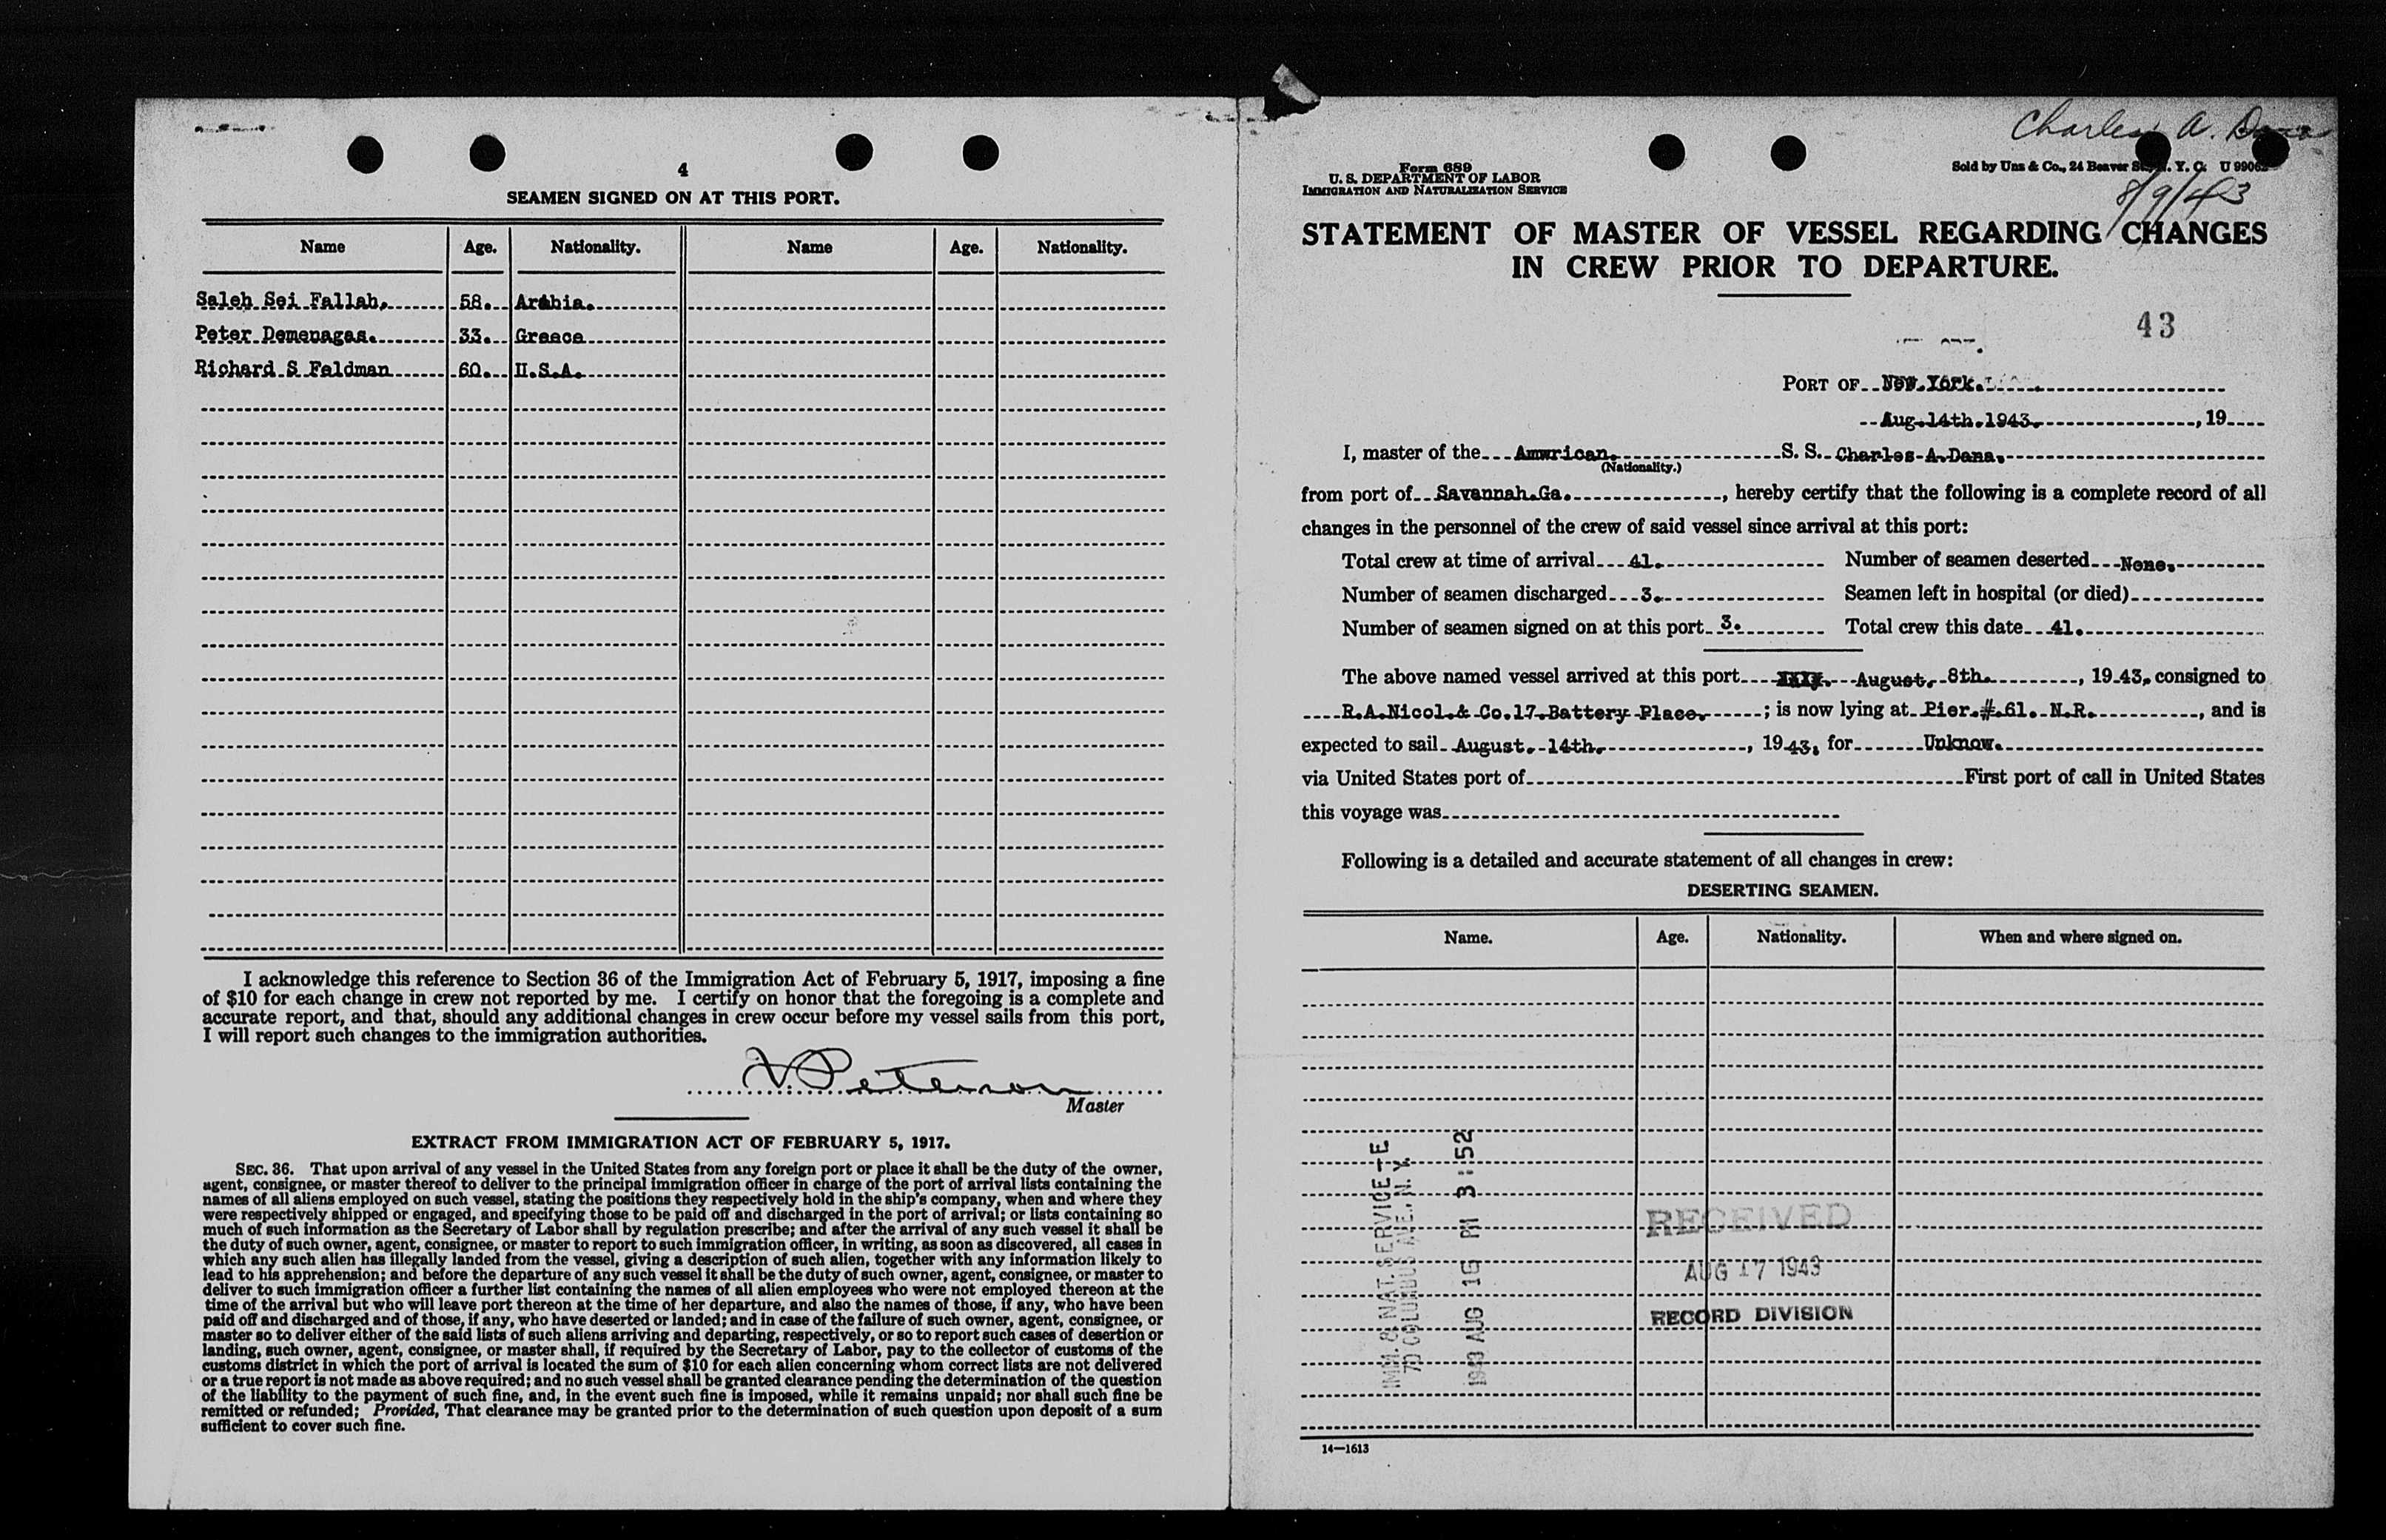 4
SEAMEN SIGNED ON AT THIS PORT.
Name Age. Nationality. Name Age. Nationality.
Saleh Sei Fallah. 58. Arabia.
Peter Demenagas. 33. Greece
Richard S Feldman 60. U.S.A.
I acknowledge this reference to Section 36 of the Immigration Act of February 5, 1917, imposing a fine
of $10 for each change in crew not reported by me. I certify on honor that the foregoing is a complete and
accurate report, and that, should any additional changes in crew occur before my vessel sails from this port,
I will report such changes to the immigration authorities.
Peterson
Master
EXTRACT FROM IMMIGRATION ACT OF FEBRUARY 5, 1917.
SEC. 36. That upon arrival of any vessel in the United States from any foreign port or place it shall be the duty of the owner,
agent, consignee, or master thereof to deliver to the principal immigration officer in charge of the port of arrival lists containing the
names of all aliens employed on such vessel, stating the positions they respectively hold in the ship's company, when and where they
were respectively shipped or engaged, and specifying those to be paid off and discharged in the port of arrival; or lists containing so
much of such information as the Secretary of Labor shall by regulation prescribe; and after the arrival of any such vessel it shall be
the duty of such owner, agent, consignee, or master to report to such immigration officer, in writing, as soon as discovered, all cases in
which any such alien has illegally landed from the vessel, giving a description of such alien, together with any information likely to
lead to his apprehension; and before the departure of any such vessel it shall be the duty of such owner, agent, consignee, or master to
deliver to such immigration officer a further list containing the names of all alien employees who were not employed thereon at the
time of the arrival but who will leave port thereon at the time of her departure, and also the names of those, if any, who have been
paid off and discharged and of those, if any, who have deserted or landed; and in case of the failure of such owner, agent, consignee, or
master so to deliver either of the said lists of such aliens arriving and departing, respectively, or so to report such cases of desertion or
landing, such owner, agent, consignee, or master shall, if required by the Secretary of Labor, pay to the collector of customs of the
customs district in which the port of arrival is located the sum of $10 for each alien concerning whom correct lists are not delivered
or a true report is not made as above required; and no such vessel shall be granted clearance pending the determination of the question
of the liability to the payment of such fine, and, in the event such fine is imposed, while it remains unpaid; nor shall such fine be
remitted or refunded; Provided, That clearance may be granted prior to the determination of such question upon deposit of a sum
sufficient to cover such fine.
Charles A. Dana
Form 689
U. S. DEPARTMENT OF LABOR
IMMIGRATION AND NATURALIZATION SERVICE
Sold by Uns & Co., 24 Beaver Y. C. U
8/9/43
STATEMENT OF MASTER OF VESSEL REGARDING CHANGES
IN CREW PRIOR TO DEPARTURE.
43
PORT OF New York.
Aug.14th.1943. , 19
I, master of the Amwrican. S. S. Charles A.Dana.
(Nationality.)
from port of Savannah.Ga. , hereby certify that the following is a complete record of all
changes in the personnel of the crew of said vessel since arrival at this port:
Total crew at time of arrival 41. Number of seamen deserted None.
Number of seamen discharged 3. Seamen left in hospital (or died)
Number of seamen signed on at this port 3. Total crew this date 41.
The above named vessel arrived at this port August. 8th. , 19 43. consigned to
R.A.Nicol.& Co.17.Battery Place. ; is now lying at Pier.#.61. N.R. , and is
expected to sail August. 14th. , 19 43. for Unknow.
via United States port of First port of call in United States
this voyage was
Following is a detailed and accurate statement of all changes in crew:
DESERTING SEAMEN.
Name. Age. Nationality. When and where signed on.
IMM. & NAT. SERVICE-E
70 COLUMBUS AVE., N. Y.
1943 AUG 15 PM 3:52
RECEIVED
AUG 17 1943
RECORD DIVISION
14—1613